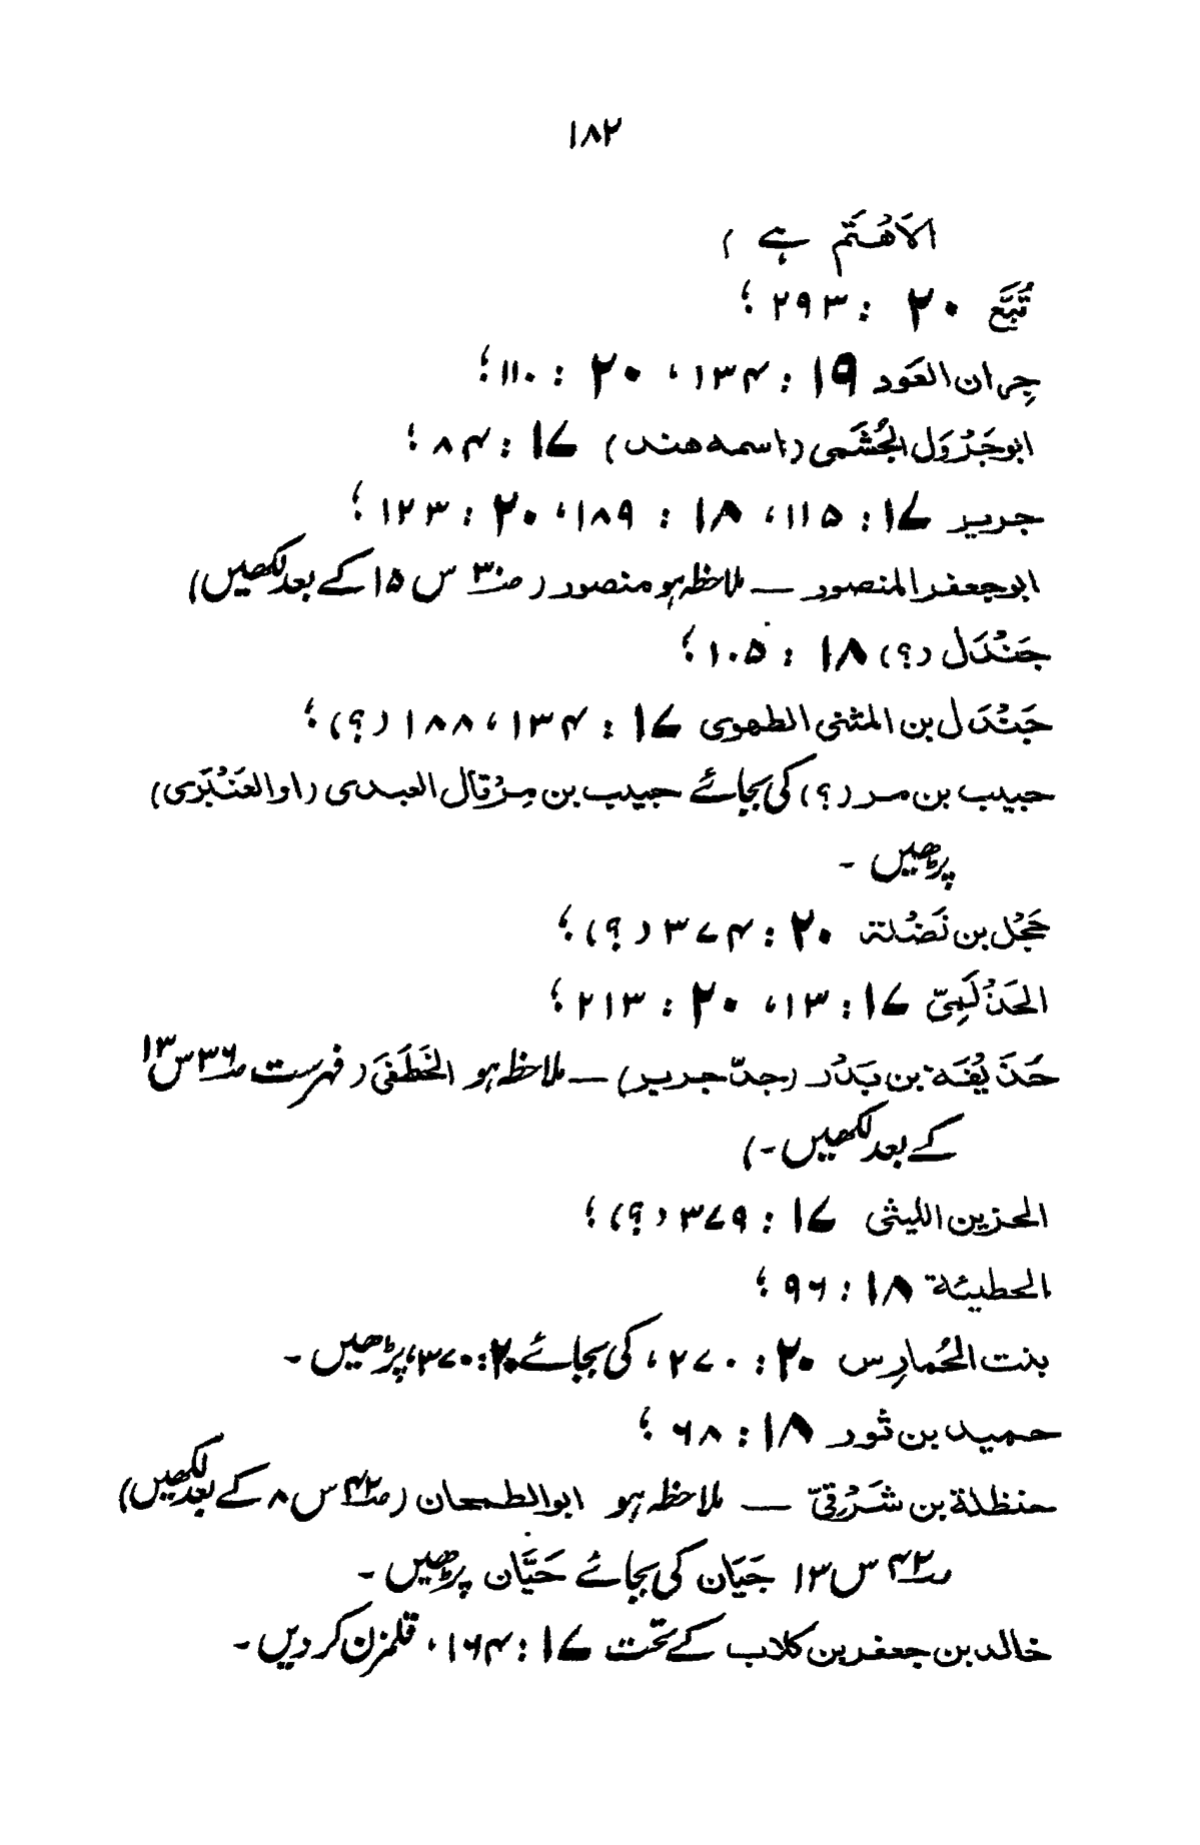 ۱۸۲
الاَهْتَم ہے )
تُبَّع ۲۰ : ۲۹۳ ؛
جِران العَود ۱۹ : ۱۳۴ ، ۲۰ : ۱۱۰ ؛
ابوجَرْوَل الجُشَمی (اسمه هند) ۱۷ : ۸۴ ؛
جریر ۱۷ : ۱۱۵ ، ۱۸ : ۱۸۹ ، ۲۰ : ۱۲۳ ؛
ابوجعفر المنصور — ملاحظہ ہو منصور ( صـ۳۰ س ۱۵ کے بعد لکھیں)
جَنْدَل (؟) ۱۸ : ۱۰۵ ؛
جَنْدَل بن المثنی الطهوی ۱۷ : ۱۳۴ ، ۱۸۸ (؟) ؛
حبیب بن مر (؟) کی بجائے حبیب بن مِرْقال العبدی (او العَنْبَری)
پڑھیں ۔
حَجْل بن نَضْلة ۲۰ : ۳۷۴ (؟) ؛
الحَذْلَمِیّ ۱۷ : ۱۳ ، ۲۰ : ۲۱۳ ؛
حُذَیْفَة بن بَدْر (جدّ جریر) — ملاحظہ ہو الخَطَفَیٰ ( فہرست صـ۳۶ س ۱۳
کے بعد لکھیں ۔)
الحزین اللیثی ۱۷ : ۳۷۹ (؟) ؛
الحطیئة ۱۸ : ۹۶ ؛
بنت الحُمارِس ۲۰ : ۲۷۰ ، کی بجائے ۲۰ : ۳۷۰ ، پڑھیں ۔
حمید بن ثور ۱۸ : ۶۸ ؛
حنظلة بن شَرْقیّ — ملاحظہ ہو ابوالطمحان ( صـ۴۲ س ۸ کے بعد لکھیں)
صـ۴۲ س ۱۳ جَیَان کی بجائے حَیَّان پڑھیں ۔
خالد بن جعفر بن کلاب کے تحت ۱۷ : ۱۶۴ ، قلمزن کر دیں ۔